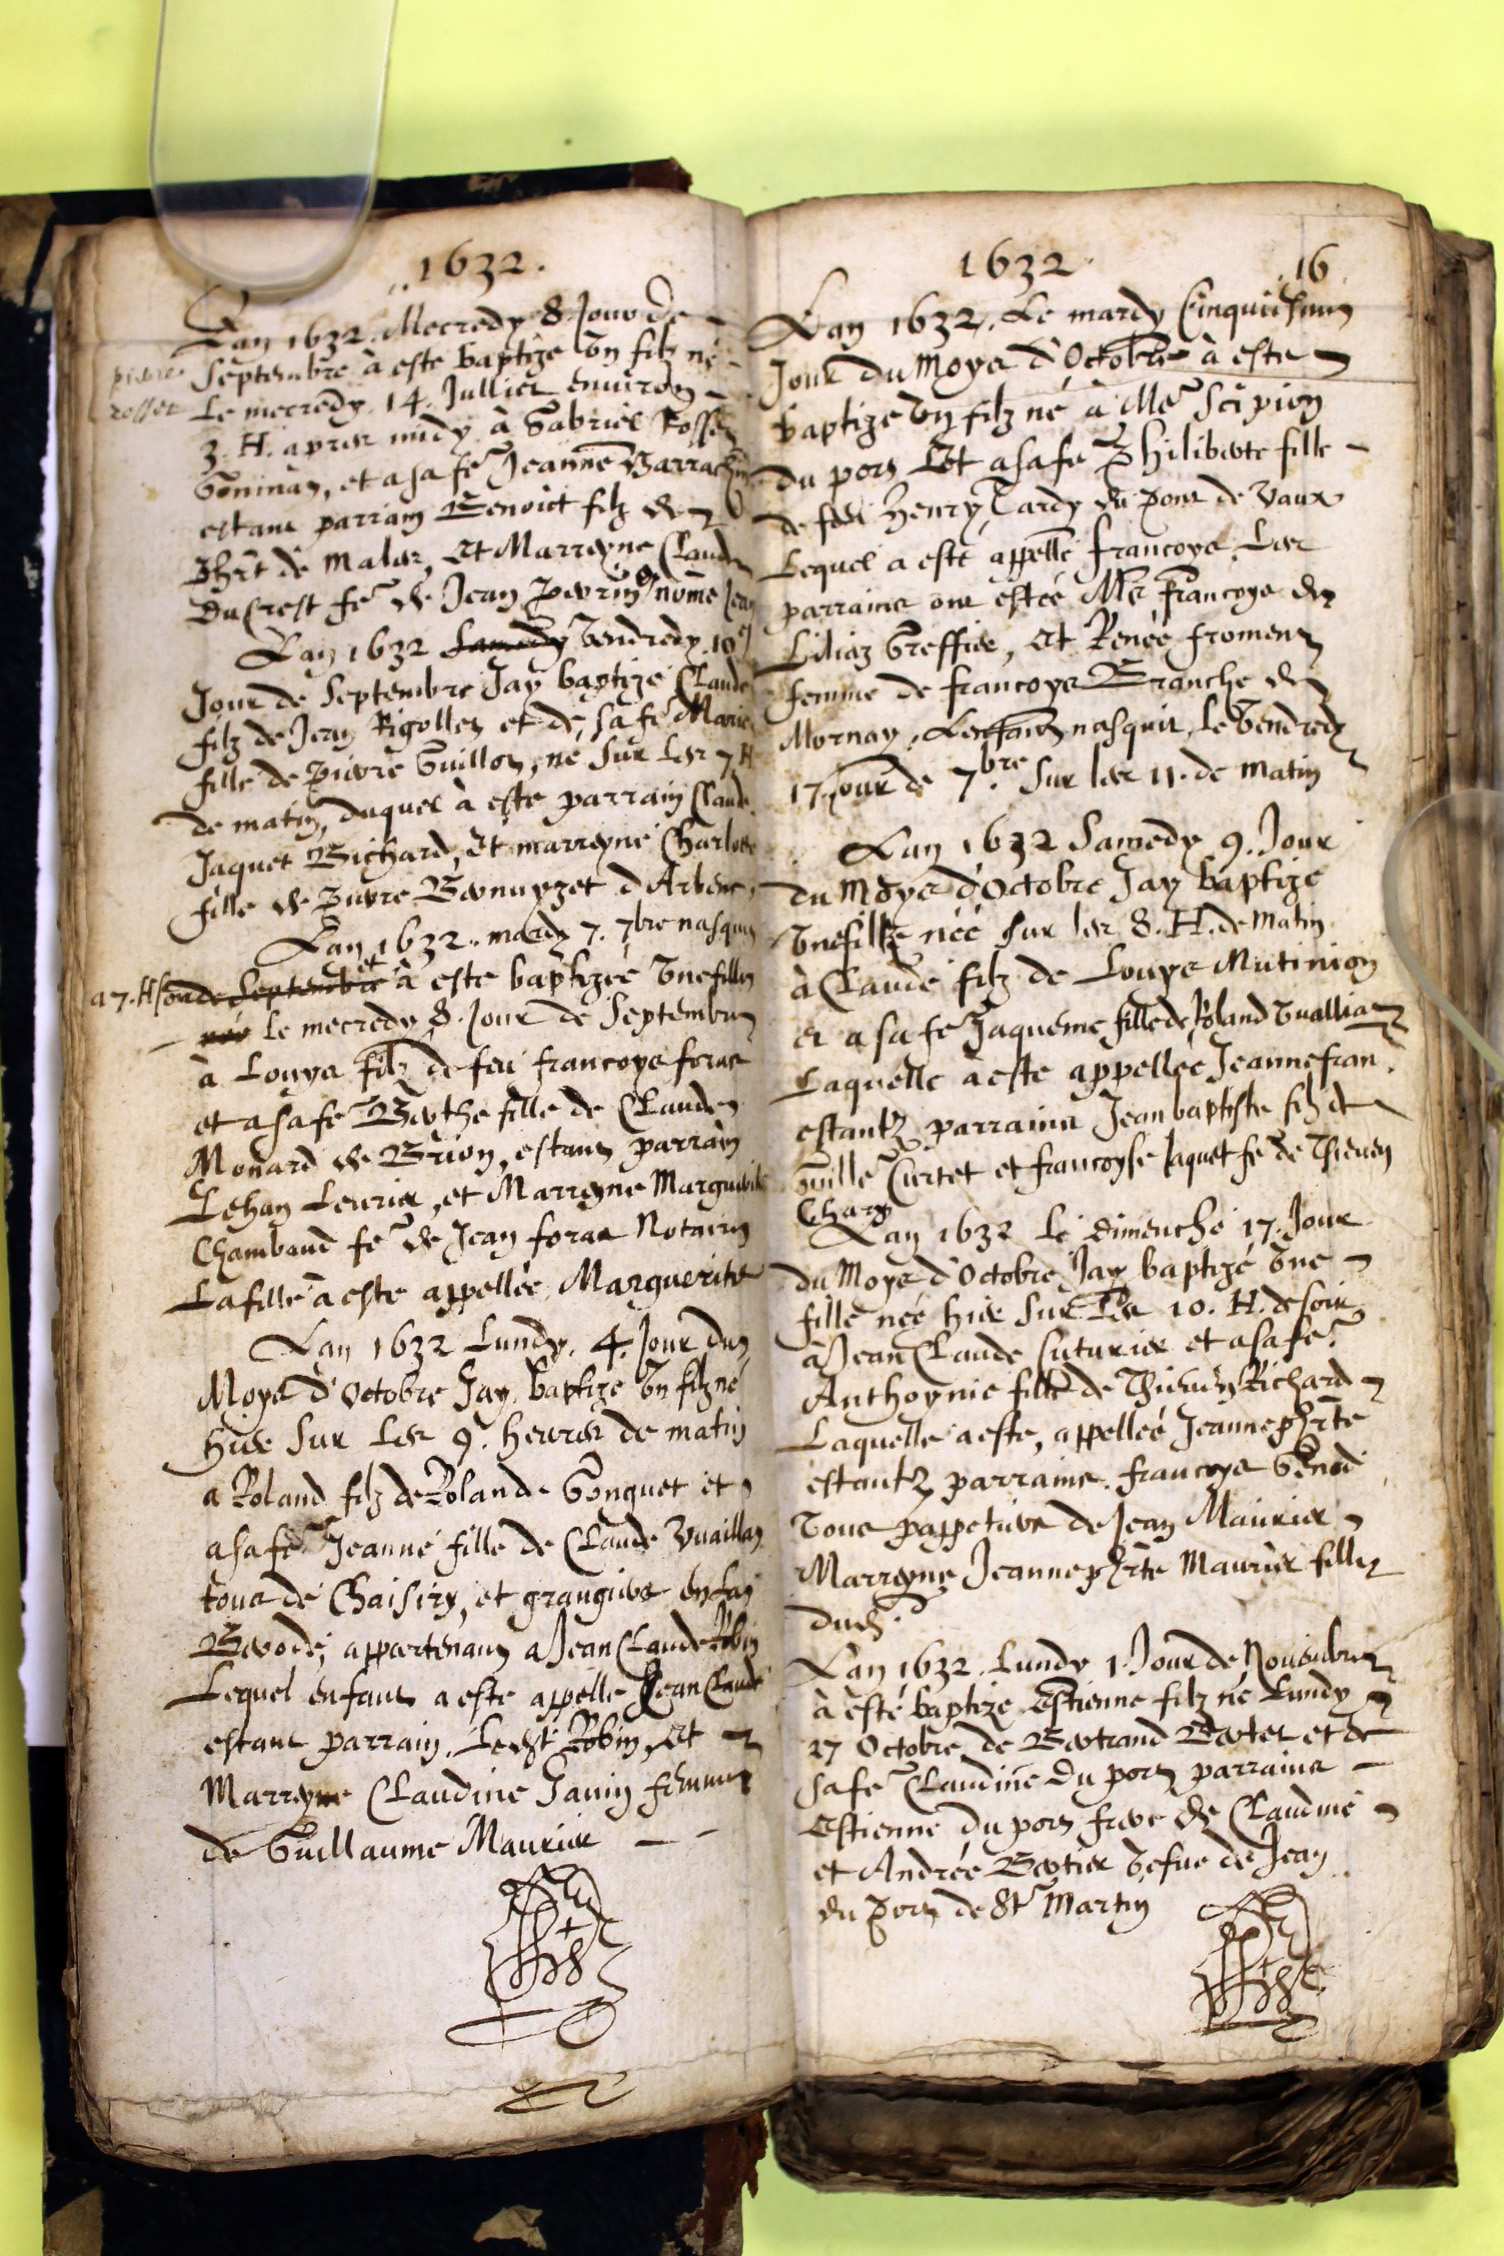 1632.
Lan 1632. Mecredy 8. Jour de
Septembre à este baptize Un filz né
pierre
rosset
Le mecredy 14. Jullier enuiron
3. H. apres midy à Gabriel Rosset
Goninan, et a sa fe Jeanne Barrachin
estant parrain Benoict filz de
Phrt de Malas, Et Marreyne Claude
Ducrest fe de Jean perrin nomé Jean
Lan 1632 Samedy Vendredy 10e
Jour de Septembre Jay baptizé Claude
filz de Jean Rigollet et de sa fe Marie
fille de Pierre Guillot, né sur les 7 H
de matin, duquel à este parrain Claude
Jaquet Bichard, Et marreyne Charlotte
fille de Pierre Bernuyzet d'Arbent
Lan 1632. mardy 7. 7bre nasquit
et
a 7. H son de Septembre à este baptizeé Une fille
née le mecredy 8. Jour de Septembre
à Louys filz de feu francoys foras
et a sa fe Berthe fille de Claude
Monard de Brion, estant parrain
Jehan Leurier, et Marreyne Marguerite
Chambaud fe de Jean foras Notaire
La fille a este appellée Marguerite
Lan 1632 Lundy. 4. Jour du
Moys d'Octobre Jay baptize Un filz né
hier sur les 9. heures de matin
a Roland filz de Roland Gonguet et
a sa fe Jeanne fille de Claude Vuaillan
tous de Chaisiry, et grangiers en la
Berode, appartenant a Jean Claude Robin
Lequel enfant a este appelle Jean Claude
estant parrain, Ledst Robin, Et
Marreyne Claudine Janin femme
de Guillaume Maurier
1632.
16
Lan 1632. Le mardy Cinquiesme
Jour du Moys d'Octobre à este
baptize Un filz né à Mre Scipion
du port Et a sa fe Philiberte fille
de feu Henry Tardy du pont de Vaux
Lequel a esté appellé francoys. Les
parrains ont estéé Mre francoys du
Liliaz Greffier, Et Renée froment
femme de francoys Branche de
Mornay. Lenfant nasquit, le Vendredy
17. Jour de 7.bre Sur les 11. de matin
Lan 1632 Samedy 9. Jour
du Moys d'Octobre Jay baptize
Une fille néé sur les 8. H. de matin
à Claude filz de Louys Mutinion
et a sa fe Jaqueme fille de Roland Vuallia
Laquelle à este appelleé Jeanne fran.
estantz parrains Jean baptiste filz de
Guille Curtet et francoyse Jaquet fe de Theuen
Chary
Lan 1632 Le dimenche 17. Jour
du Moys d'Octobre Jay baptizé Une
fille néé hier sur les 10. H. de soir
à Jean Claude Cuturier et a sa fe
Anthoynie fille de Thieuen Richard
Laquelle a este, appelleé Jeanne phrte
estantz parrains. francoys Genod
Tous pappetiers de Jean Maurier
Marreyne Jeanne phrte Maurier fille
dud.
Lan 1632. Lundy 1. Jour de Nouembre
à esté baptize Estienne filz né Lundy
27 Octobre de Bertrand Berter et de
sa fe Claudine du port parrains
Estienne du port frere de Claudine
et Andrée Bertier Vefue de Jean
du port de St Martin